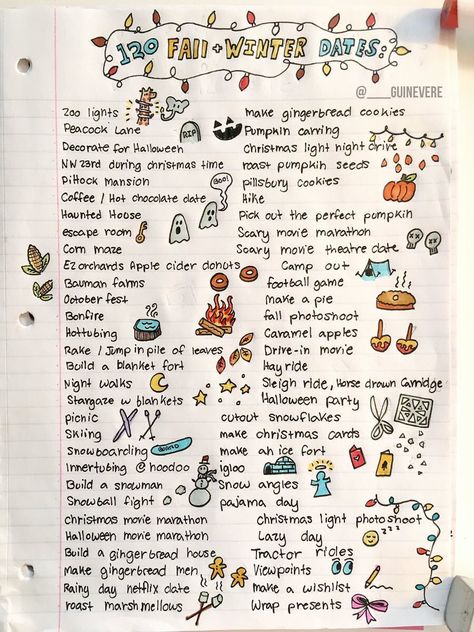 120 FALL + WINTER DATES:
@___GUINEVERE
zoo lights
make gingerbread cookies
Peacock Lane
RIP
Pumpkin carving
Decorate for Halloween
Christmas light night drive
NW 23rd during christmas time
roast pumpkin seeds
Pittock mansion
BOO!
pillsbury cookies
Coffee / Hot chocolate date
Hike
Haunted House
Pick out the perfect pumpkin
escape room
Scary movie marathon
Corn maze
Scary movie theatre date
EZ orchards Apple cider donuts
Camp out
Bauman farms
football game
October fest
make a pie
Bonfire
fall photoshoot
Hottubbing
Caramel apples
Rake / Jump in pile of leaves
Drive-in movie
Build a blanket fort
Hay ride
Night walks
Sleigh ride, Horse drawn Carridge
Stargaze w blankets
Halloween party
picnic
cutout snowflakes
Skiing
make christmas cards
Snowboarding
make an ice fort
Innertubing @ hoodoo
igloo
Build a snowman
Snow angles
Snowball fight
pajama day
Christmas movie marathon
Christmas light photoshoot
Halloween movie marathon
Lazy day
Build a gingerbread house
Tractor rides
Make gingerbread men
Viewpoints
Rainy day netflix date
make a wishlist
roast marshmellows
Wrap presents